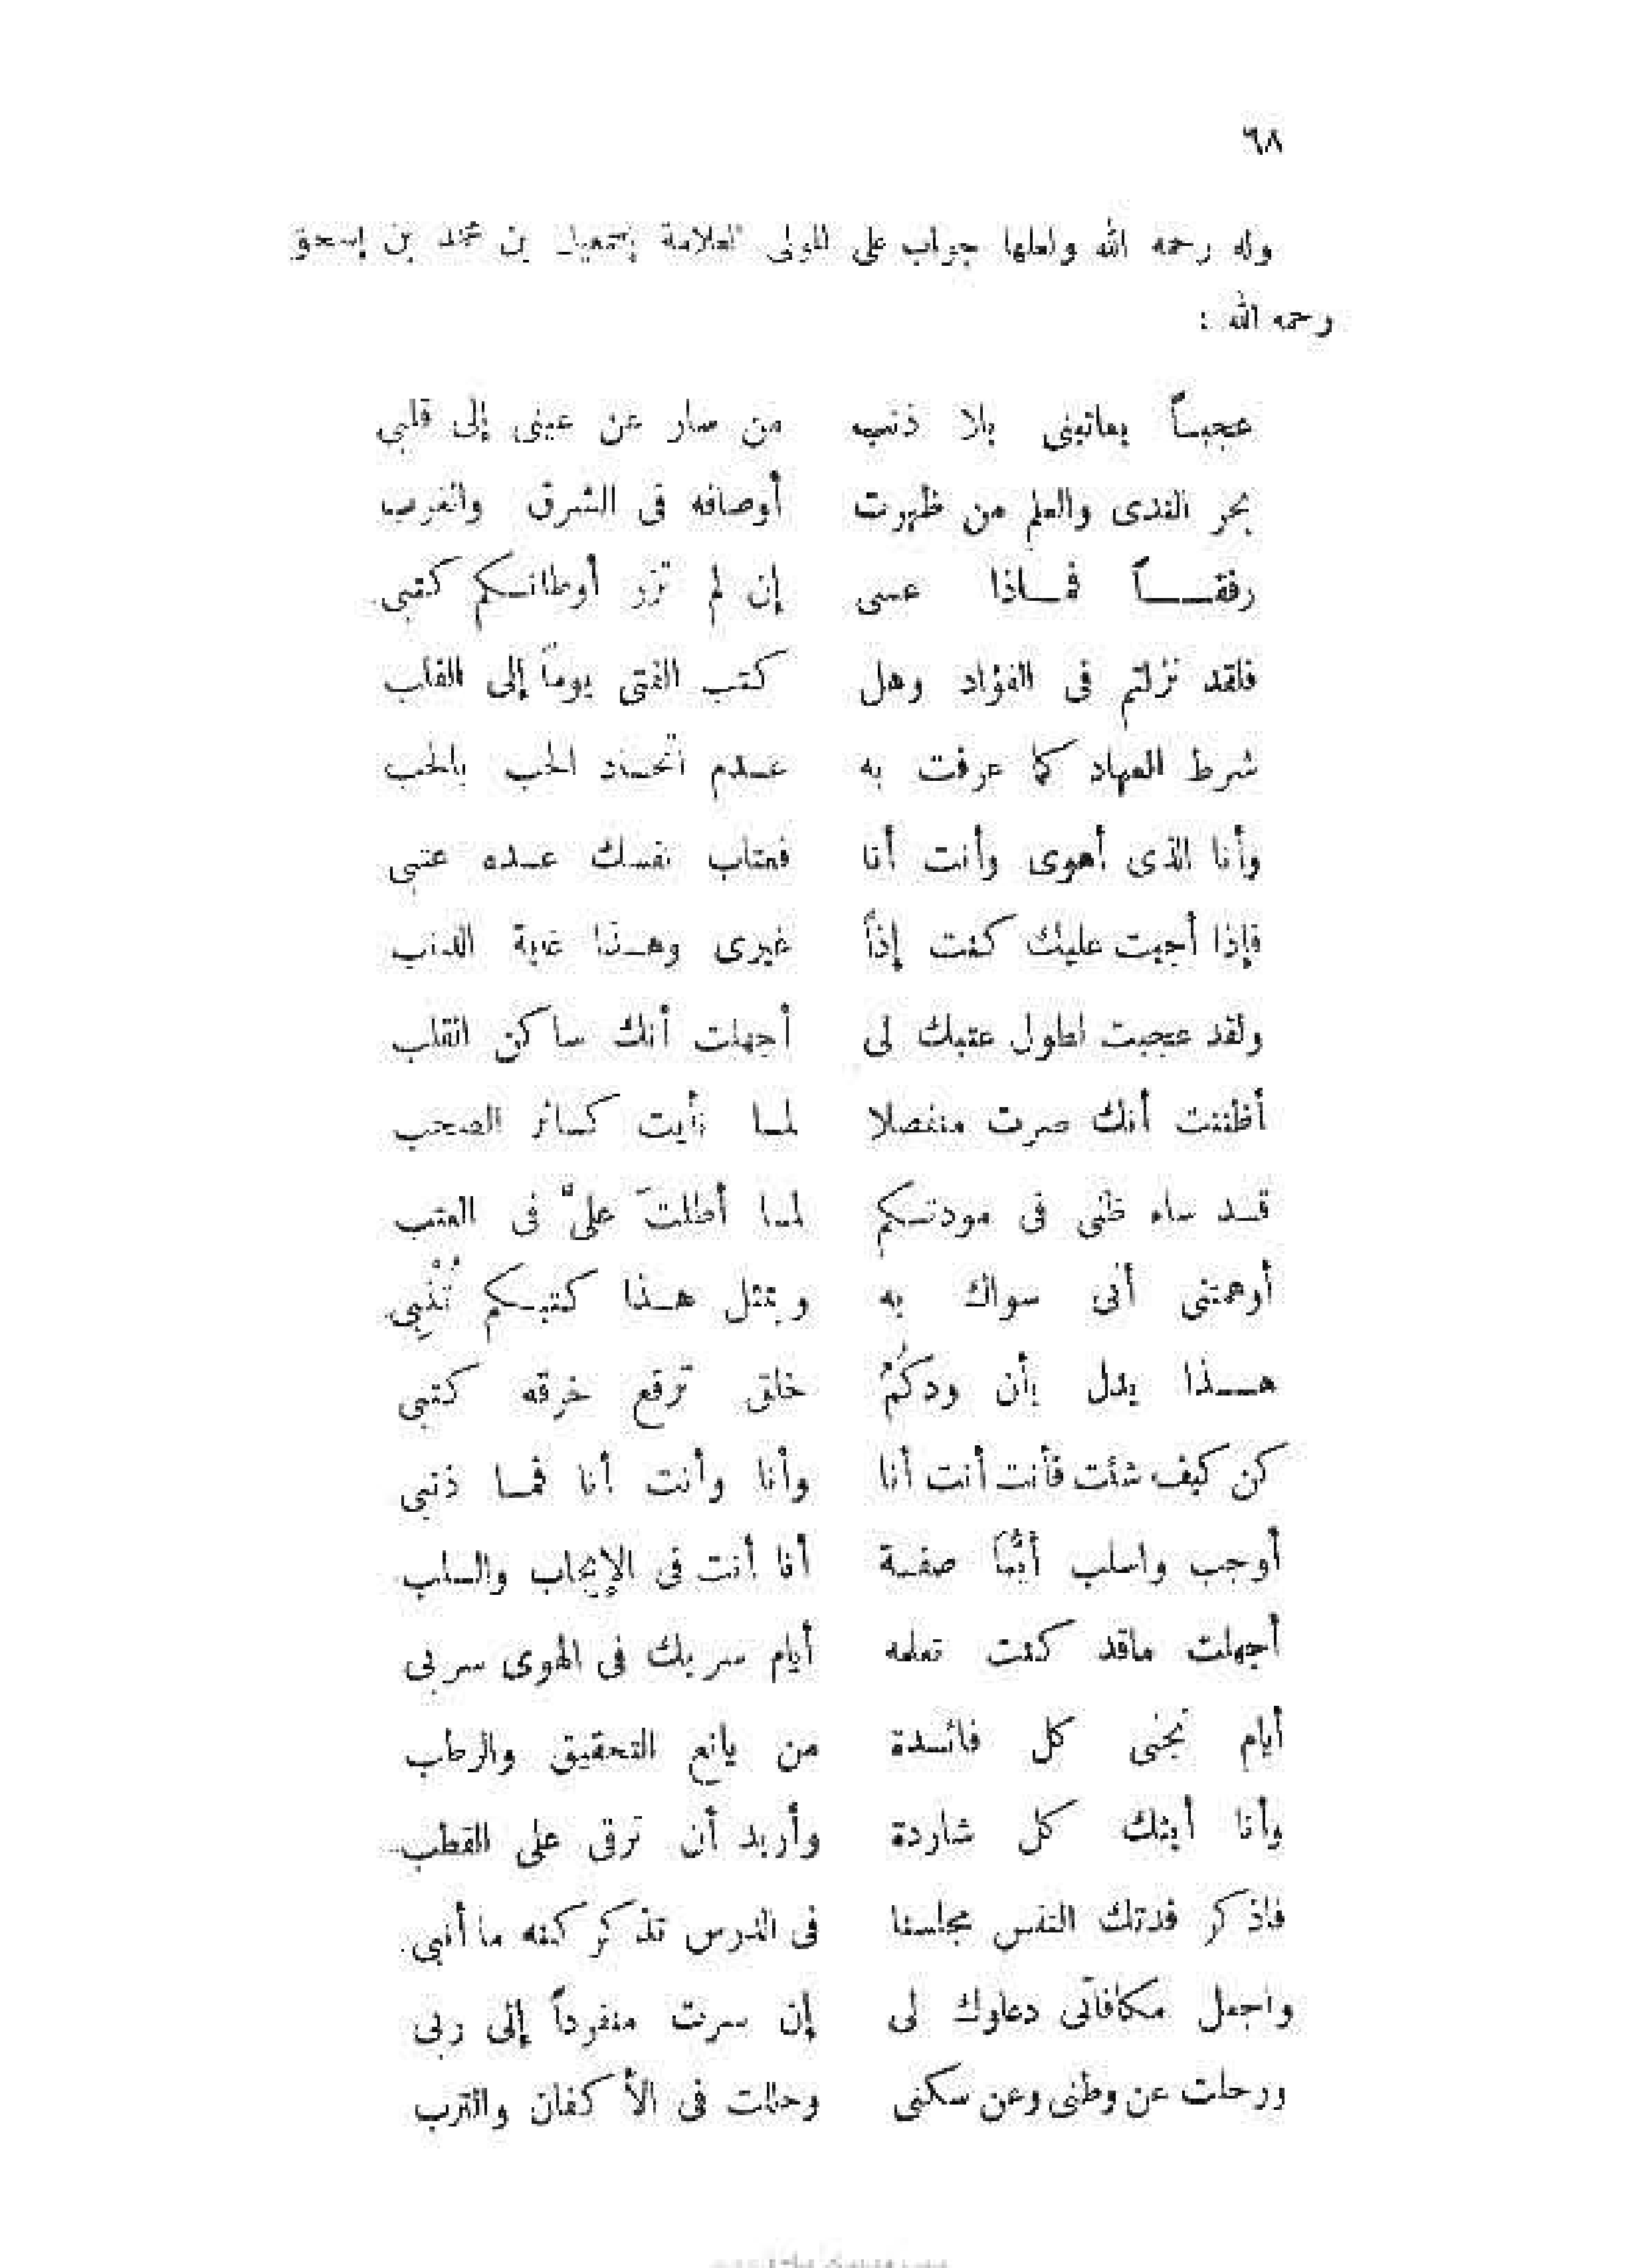 ٦٨
وله رحمه الله ولعلها جواب على المولى العلامة إسمعيل بن محمد بن إسحق
رحمه الله :
عجباً يعاتبنى بلا ذنب من سار عن عينى إلى قلبى
بحر الندى والعلم من ظهرت أوصافه فى الشرق والغرب
رفقاً فماذا عسى إن لم تزر أوطانكم كتبى
فلقد نزلتم فى الفؤاد وهل كتب الفتى يوماً إلى القلب
شرط العهاد كما عرفت به عدم اتحاد الحب بالحب
وأنا الذى أهوى وأنت أنا فعتاب نفسك عده عتبى
فإذا أجبت عليك كنت إذاً غيرى وهذا غاية الذنب
ولقد عجبت لطول عتبك لى أجهلت أنك ساكن القلب
أظننت أنك صرت منفصلا لما نأيت كسائر الصحب
قد ساء ظنى فى مودتكم لما أطلتَ علىَّ فى العتب
أوهمتنى أنى سواك به وبمثل هذا كتبكم تُنْبِى
هذا يدل بأن ودكُمُ خلق ترقع خرقه كتبى
كن كيف شئت فأنت أنت أنا وأنا وأنت أنا فما ذنبى
أوجب واسلب أيُّما صفة أنا أنت فى الإيجاب والسلب
أجهلت ماقد كنت تعلمه أيام سربك فى الهوى سربى
أيام نجنى كل فائدة من يانع التحقيق والرطب
وأنا أبثك كل شاردة وأريد أن ترقى على القطب
فاذكر فدتك النفس مجلسنا فى الدرس تذكر كنه ما أنبى
واجعل مكافاتى دعاوك لى إن سرت منفرداً إلى ربى
ورحلت عن وطنى وعن سكنى وحللت فى الأكفان والترب